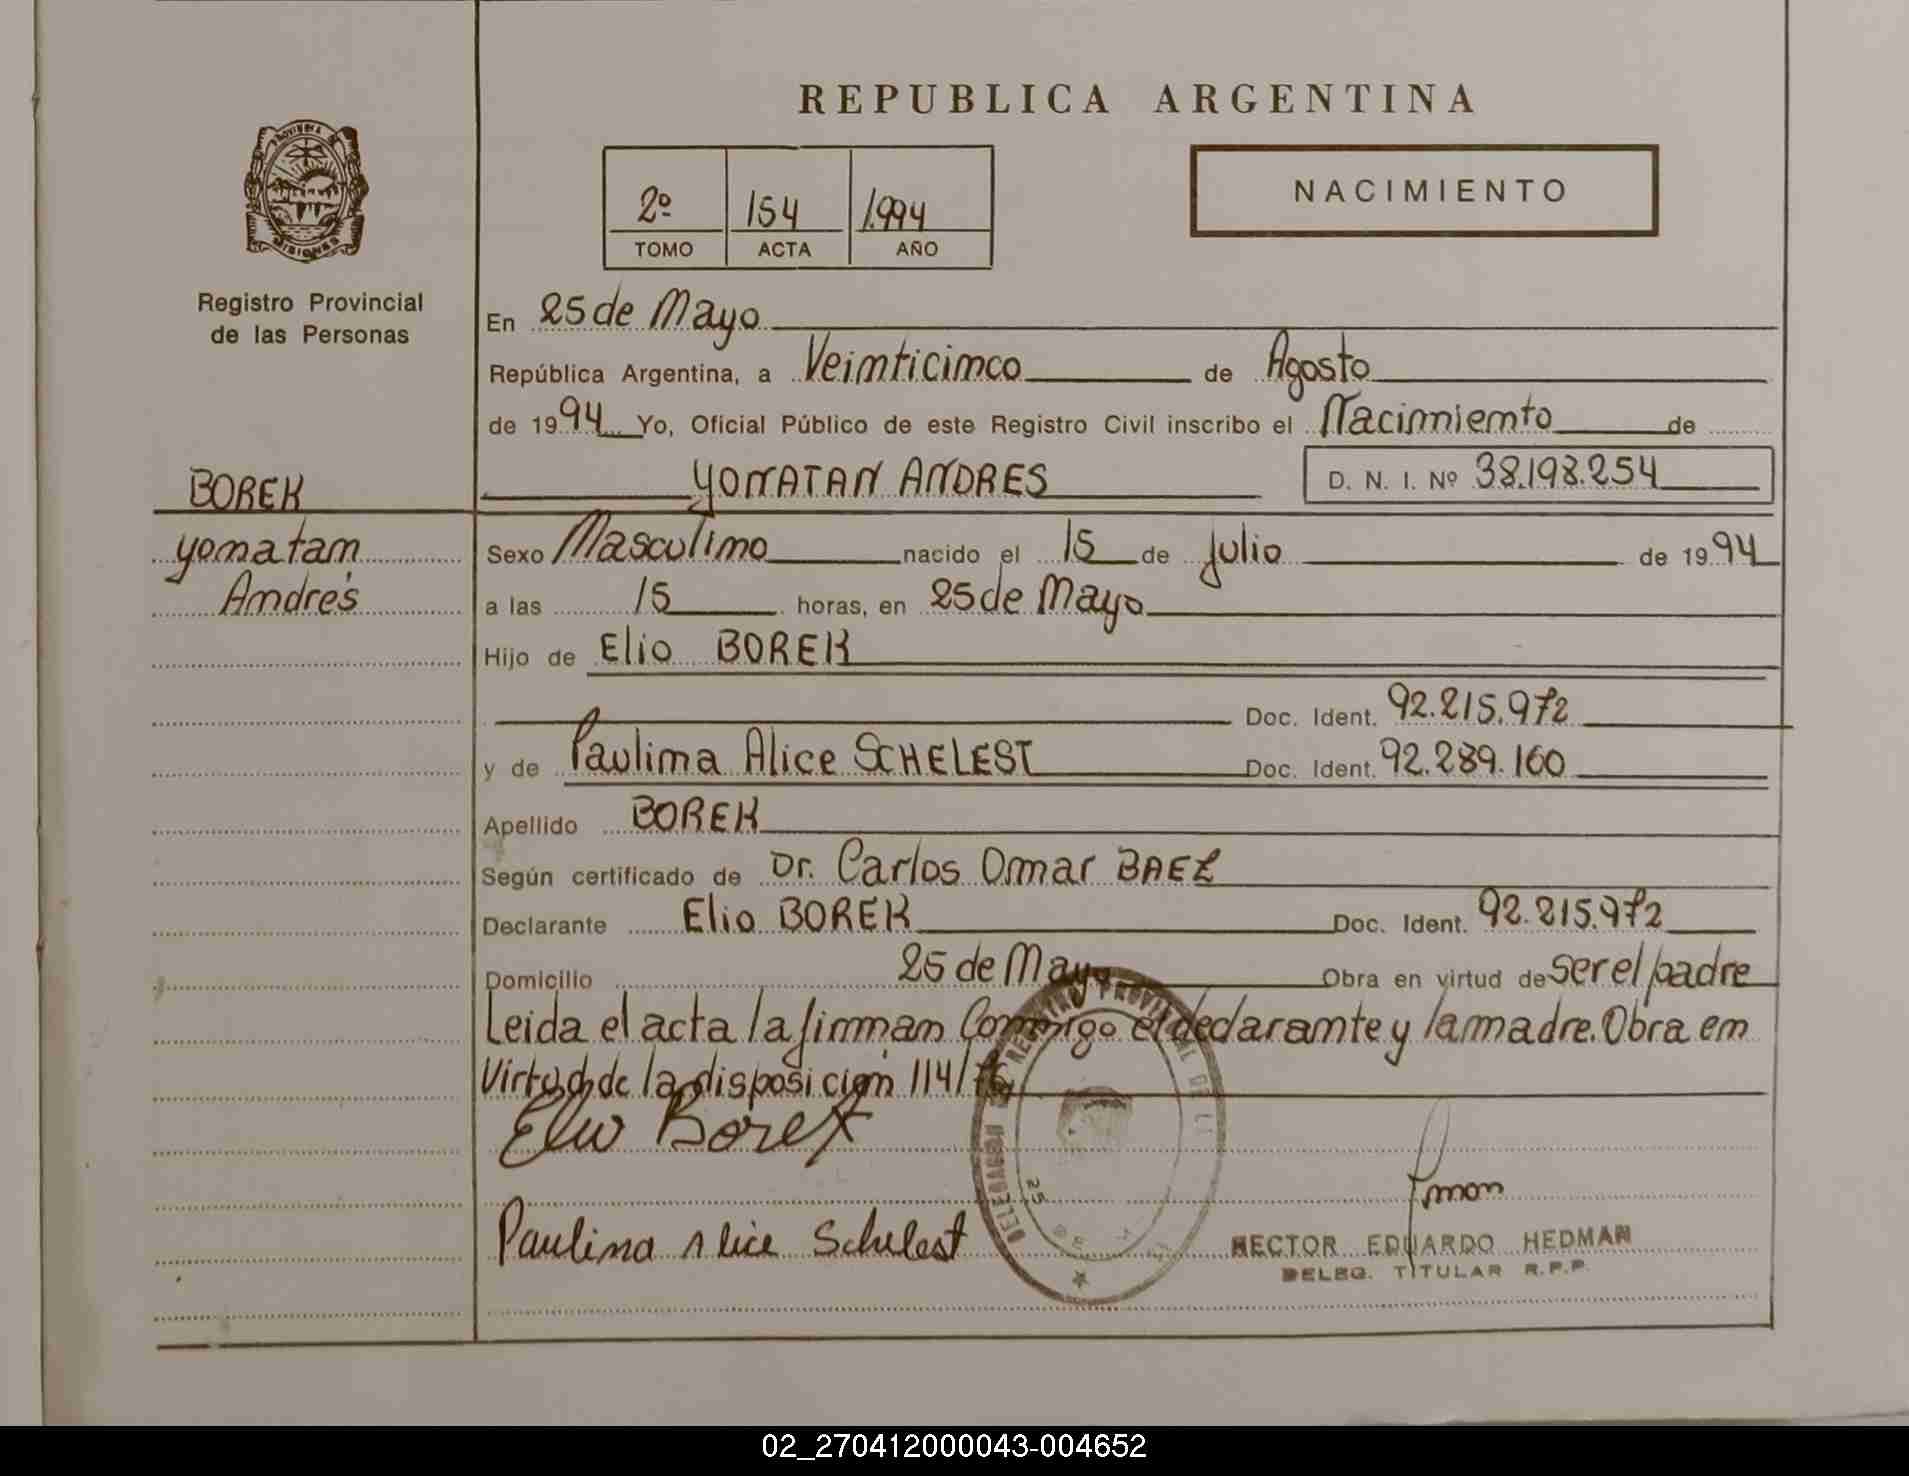 REPUBLICA ARGENTINA
PROVINCIA DE MISIONES
2º 154 1.994
TOMO ACTA AÑO
NACIMIENTO
Registro Provincial
de las Personas
En 25 de Mayo
República Argentina, a Veinticinco de Agosto
de 1994 Yo, Oficial Público de este Registro Civil inscribo el Nacimiento de
BOREK
YONATAN ANDRES D. N. I. Nº 38.198.254
Yonatan
Andrés
Sexo Masculino nacido el 15 de Julio de 1994
a las 15 horas, en 25 de Mayo
Hijo de Elio BOREK
Doc. Ident. 92.215.972
y de Paulina Alice SCHELEST Doc. Ident. 92.289.160
Apellido BOREK
Según certificado de Dr. Carlos Omar BAEZ
Declarante Elio BOREK Doc. Ident. 92.215.972
Domicilio 25 de Mayo Obra en virtud de ser el padre
Leida el acta la firman Conmigo el declarante y la madre. Obra en
Virtud de la disposición 114/76
Elio Borek
Paulina Alice Schelest
HECTOR EDUARDO HEDMAN
DELEG. TITULAR R.P.P.
02_270412000043-004652